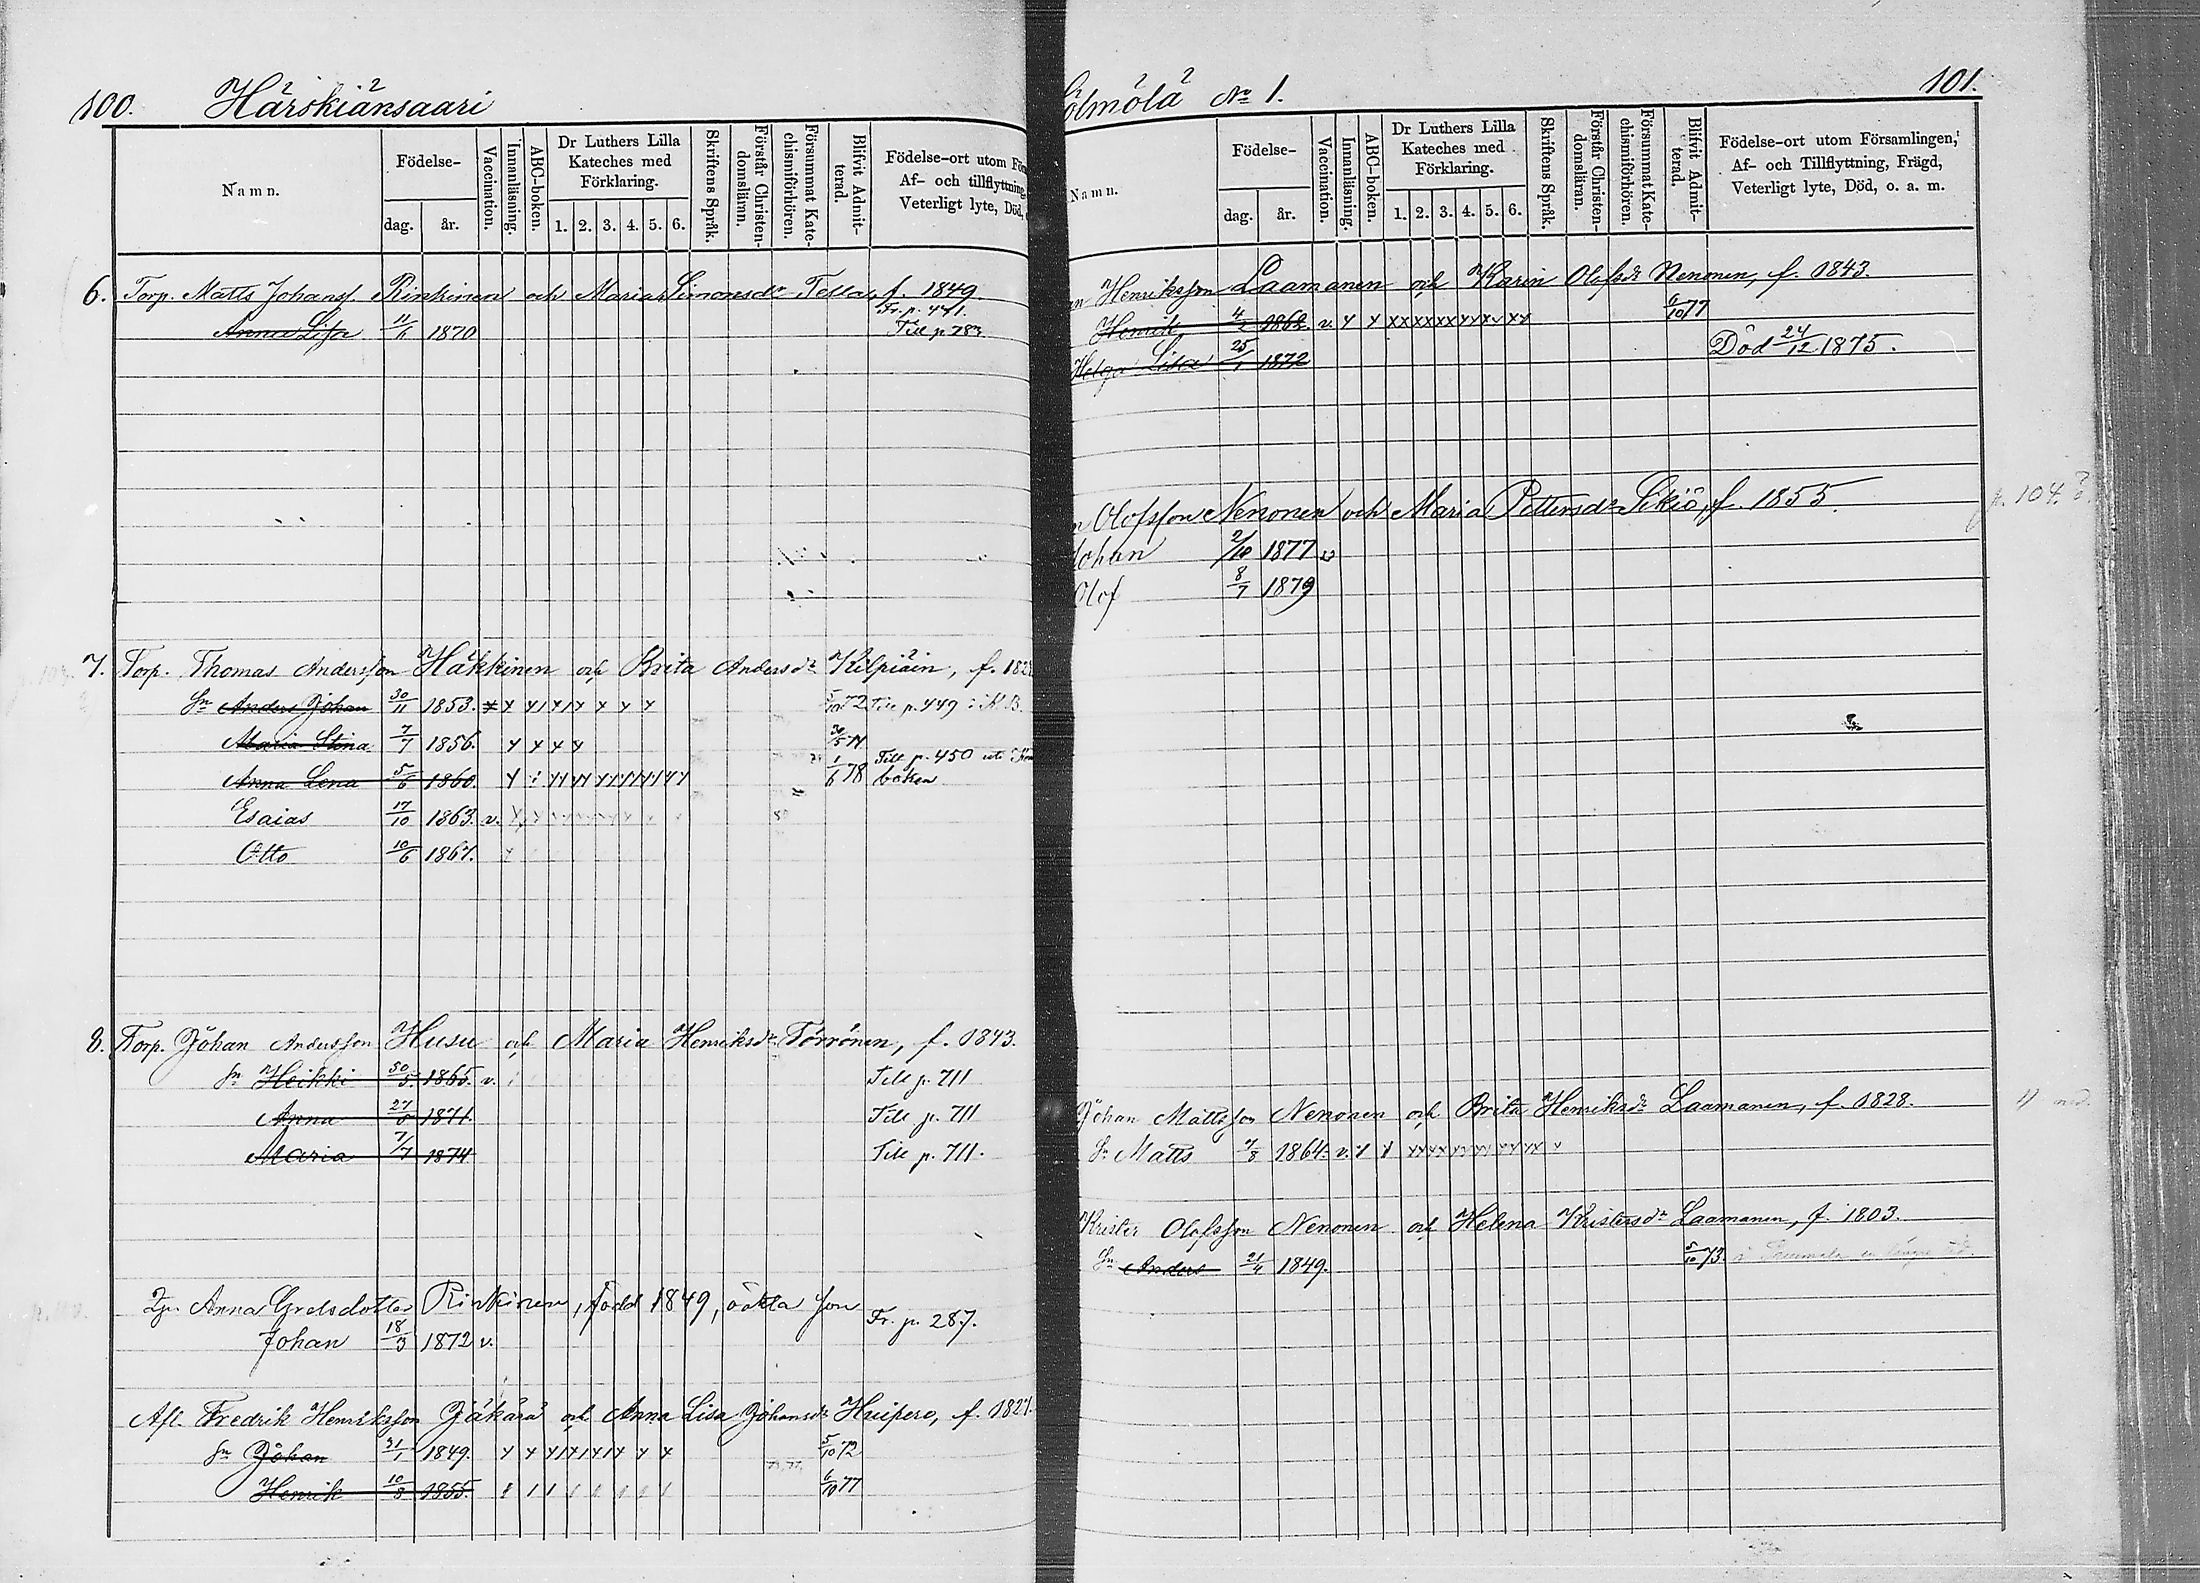 100. Härskiänsaari
Namn. Födelse- dag. år. Vaccination. Innanläsning. ABC-boken. Dr Luthers Lilla Kateches med Förklaring. 1. 2. 3. 4. 5. 6. Skriftens Språk. Förstår Christen-domsläran. Försummat Kate-chismiförhören. Blifvit Admit-terad. Födelse-ort utom För Af- och tillflyttning, Veterligt lyte, Död,
6. Torp. Matts Johanss. Rinkinen och Maria Simonsdr Tella, f. 1849.
Fr. p. 441.
Anna Lisa 11/6 1870 Till p 783
7. Torp. Thomas Andersson Häkkinen och Brita Andersdr Kilpiäin, f. 182
Sn Anders Johan 30/11 1853. 5/10 72 Till p. 449 i K.B.
Maria Stina 7/7 1856. 30/5 74
Anna Lena 5/6 1860. 1/6 78 Till p. 450 boken
Esaias 17/10 1863. v.
Otto 10/6 1867.
8. Torp. Johan Andersson Husu och Maria Henriksdr Törrönen, f. 1843.
Sn Heikki 30/5. 1865. v. Till p. 711
Anna 1871. Till p. 711
Maria 7/7 1874 Till p. 711.
Anna Gretsdotter Rinkinen, född 1849, oäkta son Fr. p. 287.
Johan 18/3 1872 v.
Afl. Fredrik Henriksson Jäkärä och Anna Lisa Johansdr Huipero, f. 1827.
Sn Johan 21/1 1849. 5/10 72
Henrik 10/8 1855. 6/10 77
olmölä No 1. 101.
Namn. Födelse- dag. år. Vaccination. Innanläsning. ABC-boken. Dr Luthers Lilla Kateches med Förklaring. 1. 2. 3. 4. 5. 6. Skriftens Språk. Förstår Christen-domsläran. Försummat Kate-chismiförhören. Blifvit Admit-terad. Födelse-ort utom Församlingen, Af- och Tillflyttning, Frägd, Veterligt lyte, Död, o. a. m.
n Henriksson Laamanen och Karin Olofsdr Nenonen, f. 1843.
Henrik 4/2 1862. v. 6/10 77
Helga Lisa 25/1 1872 Död 24/12 1875.
n Olofsson Nenonen och Maria Pettersdr Sikiö, f. 1855. p. 104.
Johan 2/10 1877 v
Olof 8/7 1879
Johan Mattsson Nenonen och Brita Henriksdr Laamanen, f. 1828.
Sn Matts 7/8 1864. v.
Krister Olofsson Nenonen och Helena Kristersdr Laamanen, f. 1803.
Sn Anders 21/4 1849. 5/10 73.